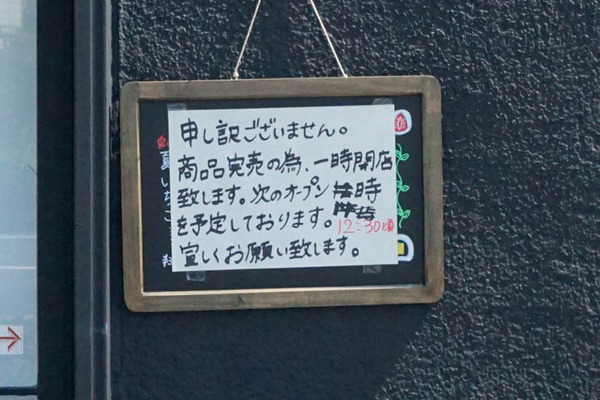 申し訳ございません。
商品完売の為、一時閉店
致します。次のオープン時
を予定しております。12:30頃
宜しくお願い致します。
夏いちご